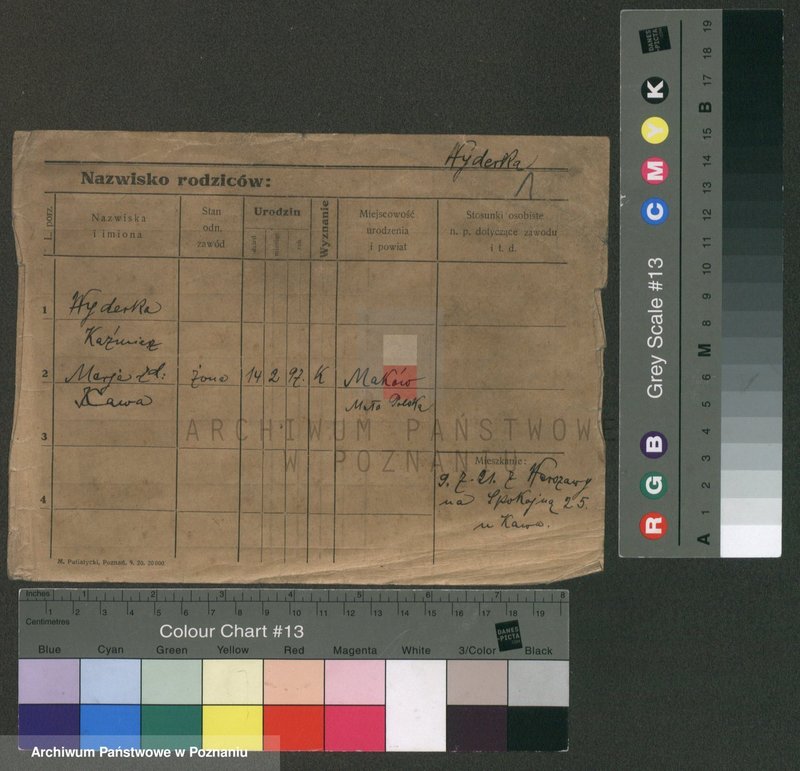 Wyderka
Nazwisko rodziców:
L. porz.
Nazwiska
i imiona
Stan
odn.
zawód
Urodzin
dzień
miesiąc
rok
Wyznanie
Miejscowość
urodzenia
i powiat
Stosunki osobiste
n. p. dotyczące zawodu
i t. d.
1 Wyderka
Kaźmierz
2 Marja z d. żona 14 2 97. K Maków
Kawa Mało Polska
3
4
Mieszkanie:
9. 7. 21. z Warszawy
na Spokojną 25.
u Kawa.
M. Putiatycki, Poznań, 9. 20. 20000
ARCHIWUM PAŃSTWOWE
W POZNANIU
Inches 1 2 3 4 5 6 7 8
Centimetres 1 2 3 4 5 6 7 8 9 10 11 12 13 14 15 16 17 18 19
Colour Chart #13
DANES
PICTA
.COM
Blue Cyan Green Yellow Red Magenta White 3/Color Black
Archiwum Państwowe w Poznaniu
Grey Scale #13
R G B C M Y K
DANES
PICTA
.COM
A 1 2 3 4 5 6 M 8 9 10 11 12 13 14 15 B 17 18 19